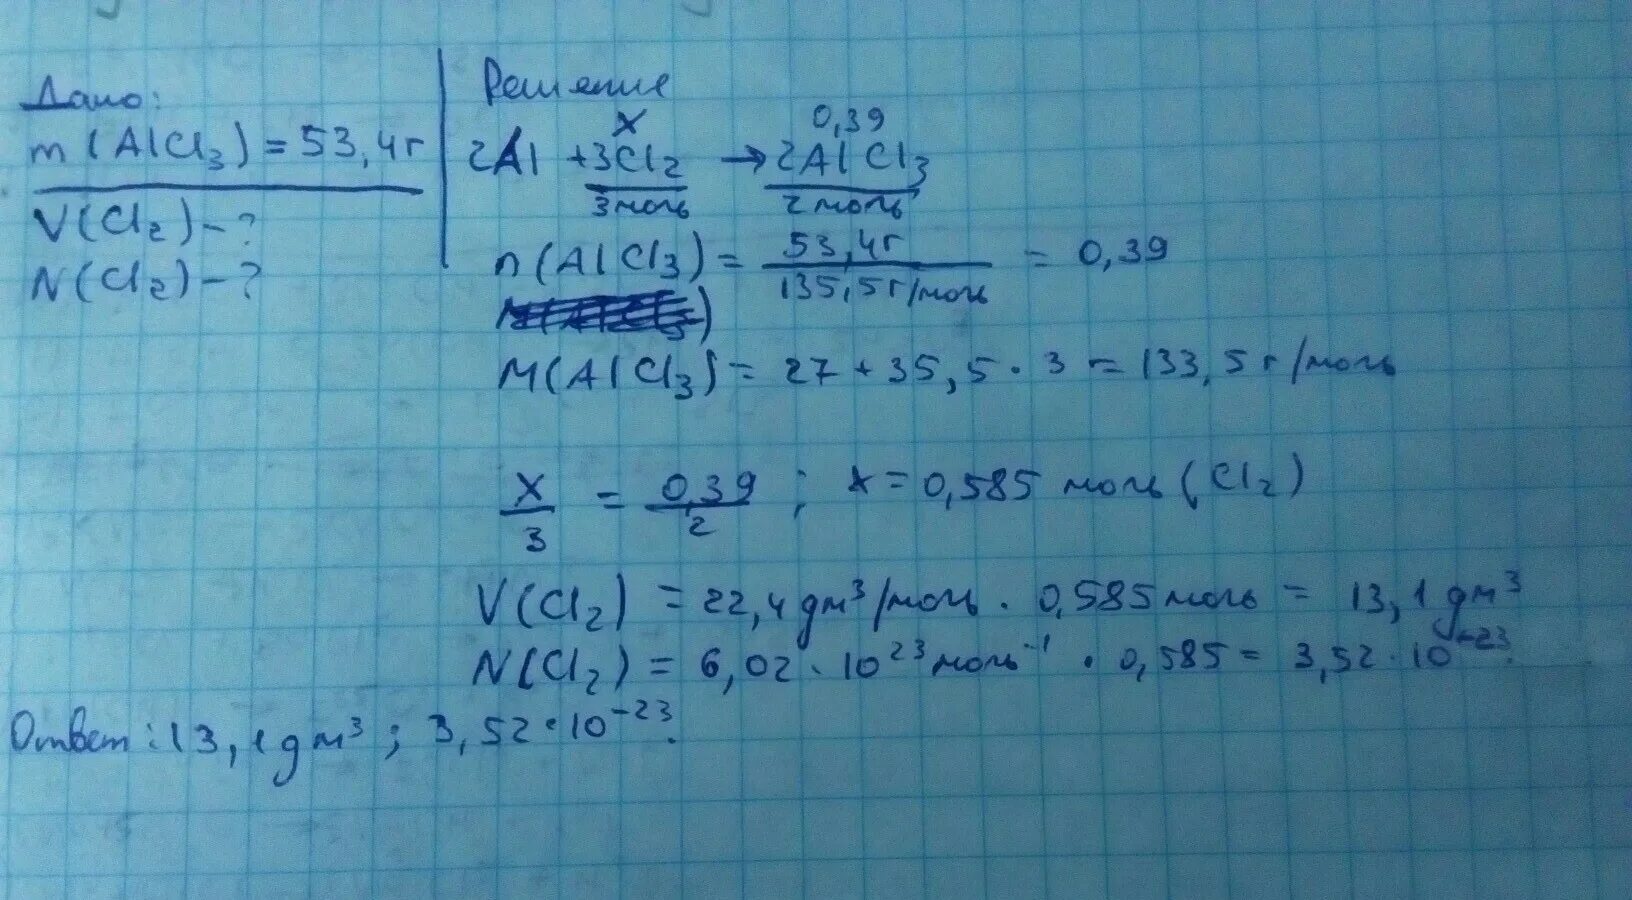 Дано:
m(AlCl₃) = 53,4г
V(Cl₂) - ?
N(Cl₂) - ?
Решение
x 0,39
2Al + 3Cl₂ → 2AlCl₃
3моль 2моль
n(AlCl₃) = 53,4г / 135,5г/моль = 0,39
M(AlCl₃) = 27 + 35,5 · 3 = 133,5г/моль
x/3 = 0,39/2 ; x = 0,585 моль (Cl₂)
V(Cl₂) = 22,4 дм³/моль · 0,585моль = 13,1 дм³
N(Cl₂) = 6,02 · 10²³ моль⁻¹ · 0,585 = 3,52 · 10⁻²³.
Ответ: 13,1 дм³ ; 3,52 · 10⁻²³.